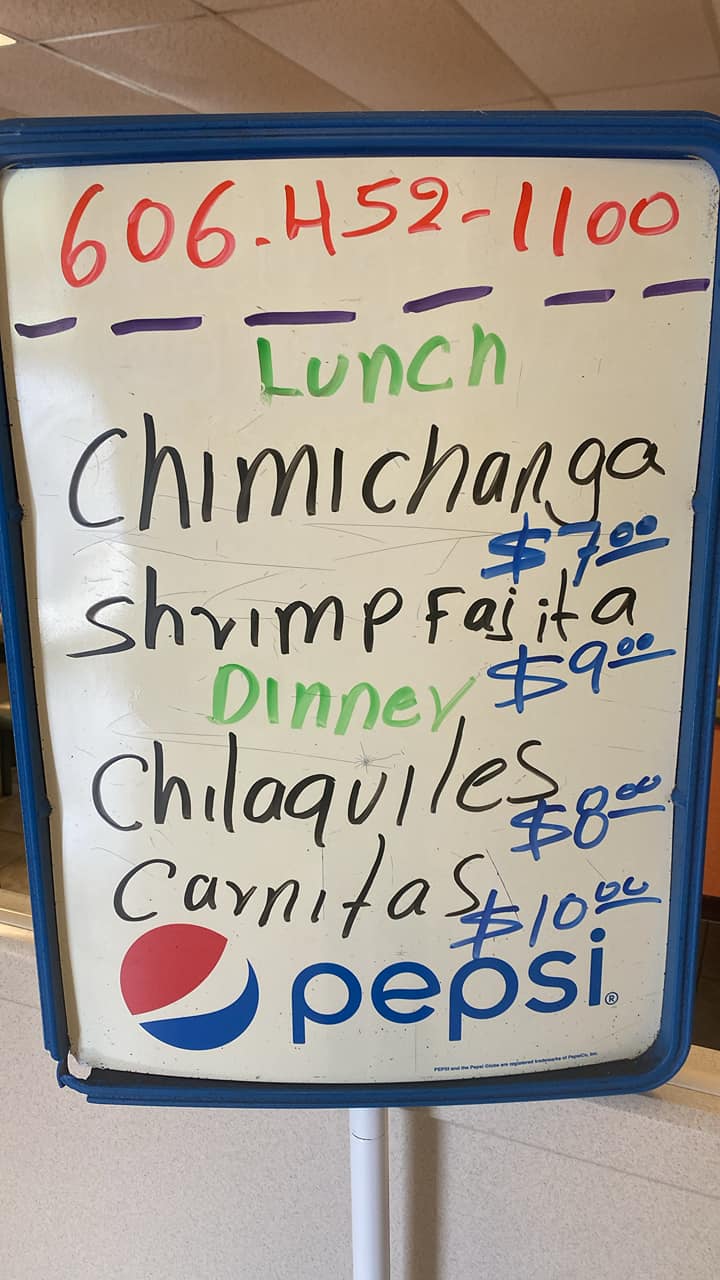 606-452-1100
Lunch
Chimichanga
$7.00
Shrimp Fajita
$9.00
Dinner
Chilaquiles
$8.00
Carnitas
$10.00
pepsi®
PEPSI and the Pepsi Globe are registered trademarks of PepsiCo, Inc.